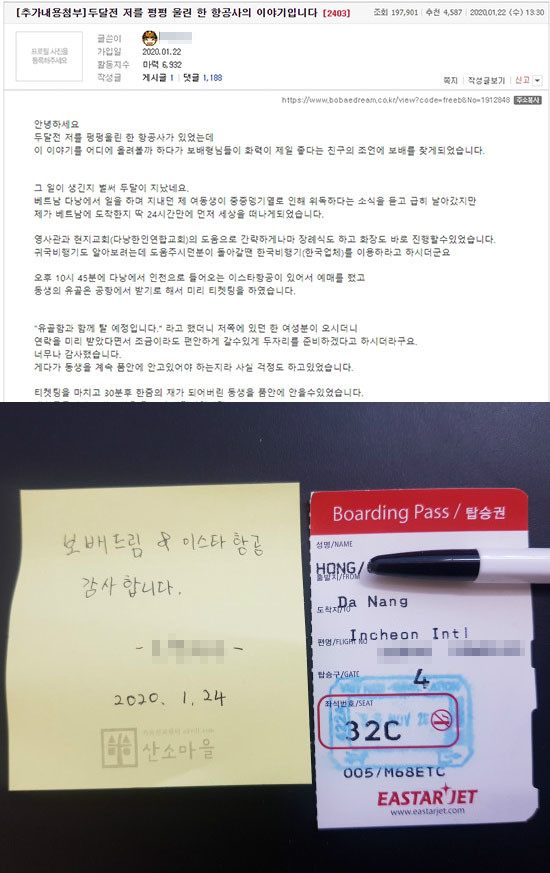 [추가내용첨부]두달전 저를 펑펑 울린 한 항공사의 이야기입니다 [2403]
조회 197,901 | 추천 4,587 | 2020.01.22 (수) 13:30
프로필 사진을
등록해주세요
글쓴이
가입일 2020.01.22
활동지수 마력 6,932
작성글 게시글 1 | 댓글 1,188
쪽지 | 작성글보기 | 신고
https://www.bobaedream.co.kr/view?code=freeb&No=1912848 주소복사
안녕하세요
두달전 저를 펑펑울린 한 항공사가 있었는데
이 이야기를 어디에 올려볼까 하다가 보배형님들이 화력이 제일 좋다는 친구의 조언에 보배를 찾게되었습니다.
그 일이 생긴지 벌써 두달이 지났네요.
베트남 다낭에서 일을 하며 지내던 제 여동생이 중중뎅기열로 인해 위독하다는 소식을 듣고 급히 날아갔지만
제가 베트남에 도착한지 딱 24시간만에 먼저 세상을 떠나게되었습니다.
영사관과 현지교회(다낭한인연합교회)의 도움으로 간략하게나마 장례식도 하고 화장도 바로 진행할수있었습니다.
귀국비행기도 알아보려는데 도움주시던분이 돌아갈땐 한국비행기(한국업체)를 이용하라고 하시더군요
오후 10시 45분에 다낭에서 인천으로 들어오는 이스타항공이 있어서 예매를 했고
동생의 유골은 공항에서 받기로 해서 미리 티켓팅을 하였습니다.
"유골함과 함께 탈 예정입니다." 라고 했더니 저쪽에 있던 한 여성분이 오시더니
연락을 미리 받았다면서 조금이라도 편안하게 갈수있게 두자리를 준비하겠다고 하시더라구요.
너무나 감사했습니다.
게다가 동생을 계속 품안에 안고있어야 하는지라 사실 걱정도 하고있었습니다.
티켓팅을 마치고 30분후 한줌의 재가 되어버린 동생을 품안에 안을수있었습니다.
보배드림 & 이스타항공
감사합니다.
2020. 1. 24
산소마을
Boarding Pass / 탑승권
성명/NAME
HONG/
출발지/FROM
Da Nang
도착지/TO
Incheon Intl
편명/FLIGHT NO
탑승구/GATE
4
좌석번호/SEAT
32C
005/M68ETC
EASTAR JET
www.eastarjet.com